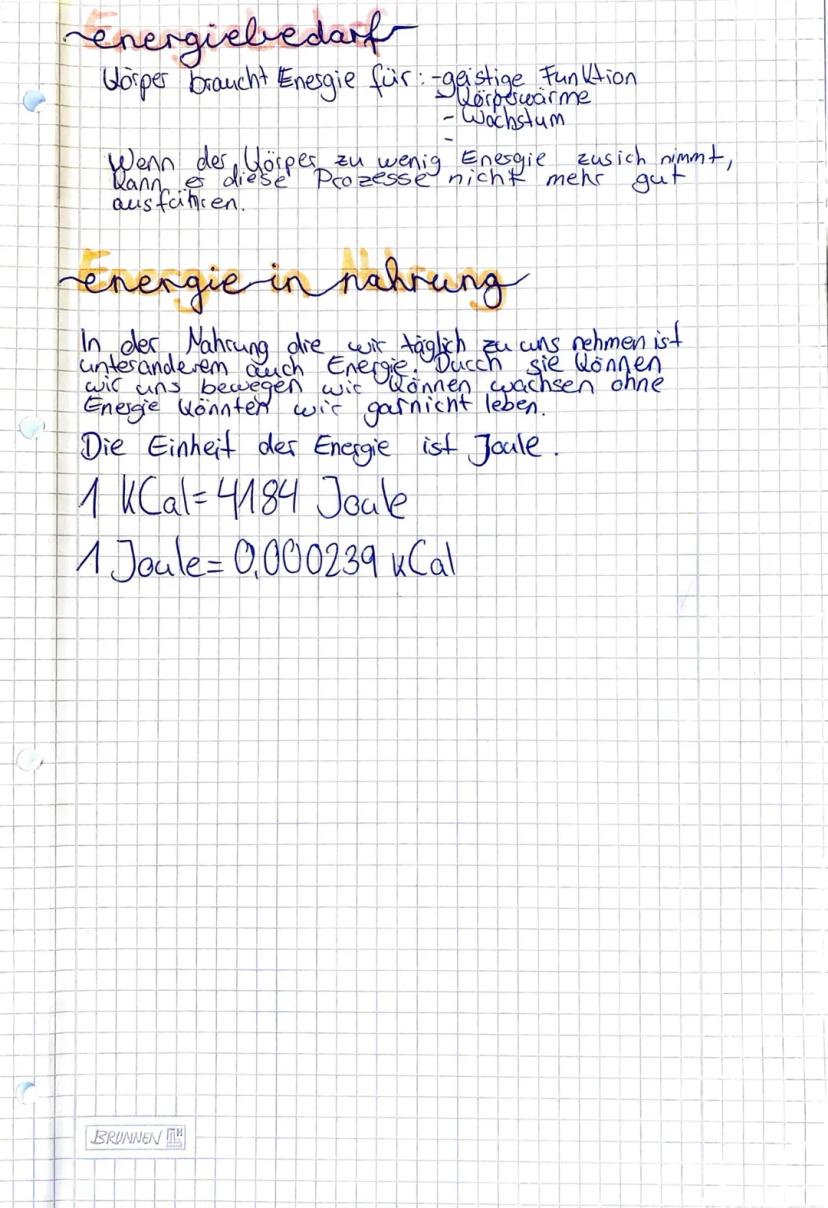 energiebedarf
Körper braucht Energie für: -geistige Funktion
- Körperwärme
- Wachstum
-
Wenn der Körper zu wenig Energie zusich nimmt,
kann er diese Prozesse nicht mehr gut
ausführen.
Energie in Nahrung
In der Nahrung die wir täglich zu uns nehmen ist
unteranderem auch Energie. Durch sie können
wir uns bewegen wir können wachsen ohne
Energie könnten wir garnicht leben.
Die Einheit der Energie ist Joule.
1 kCal = 4184 Joule
1 Joule = 0,000239 kCal
BRUNNEN